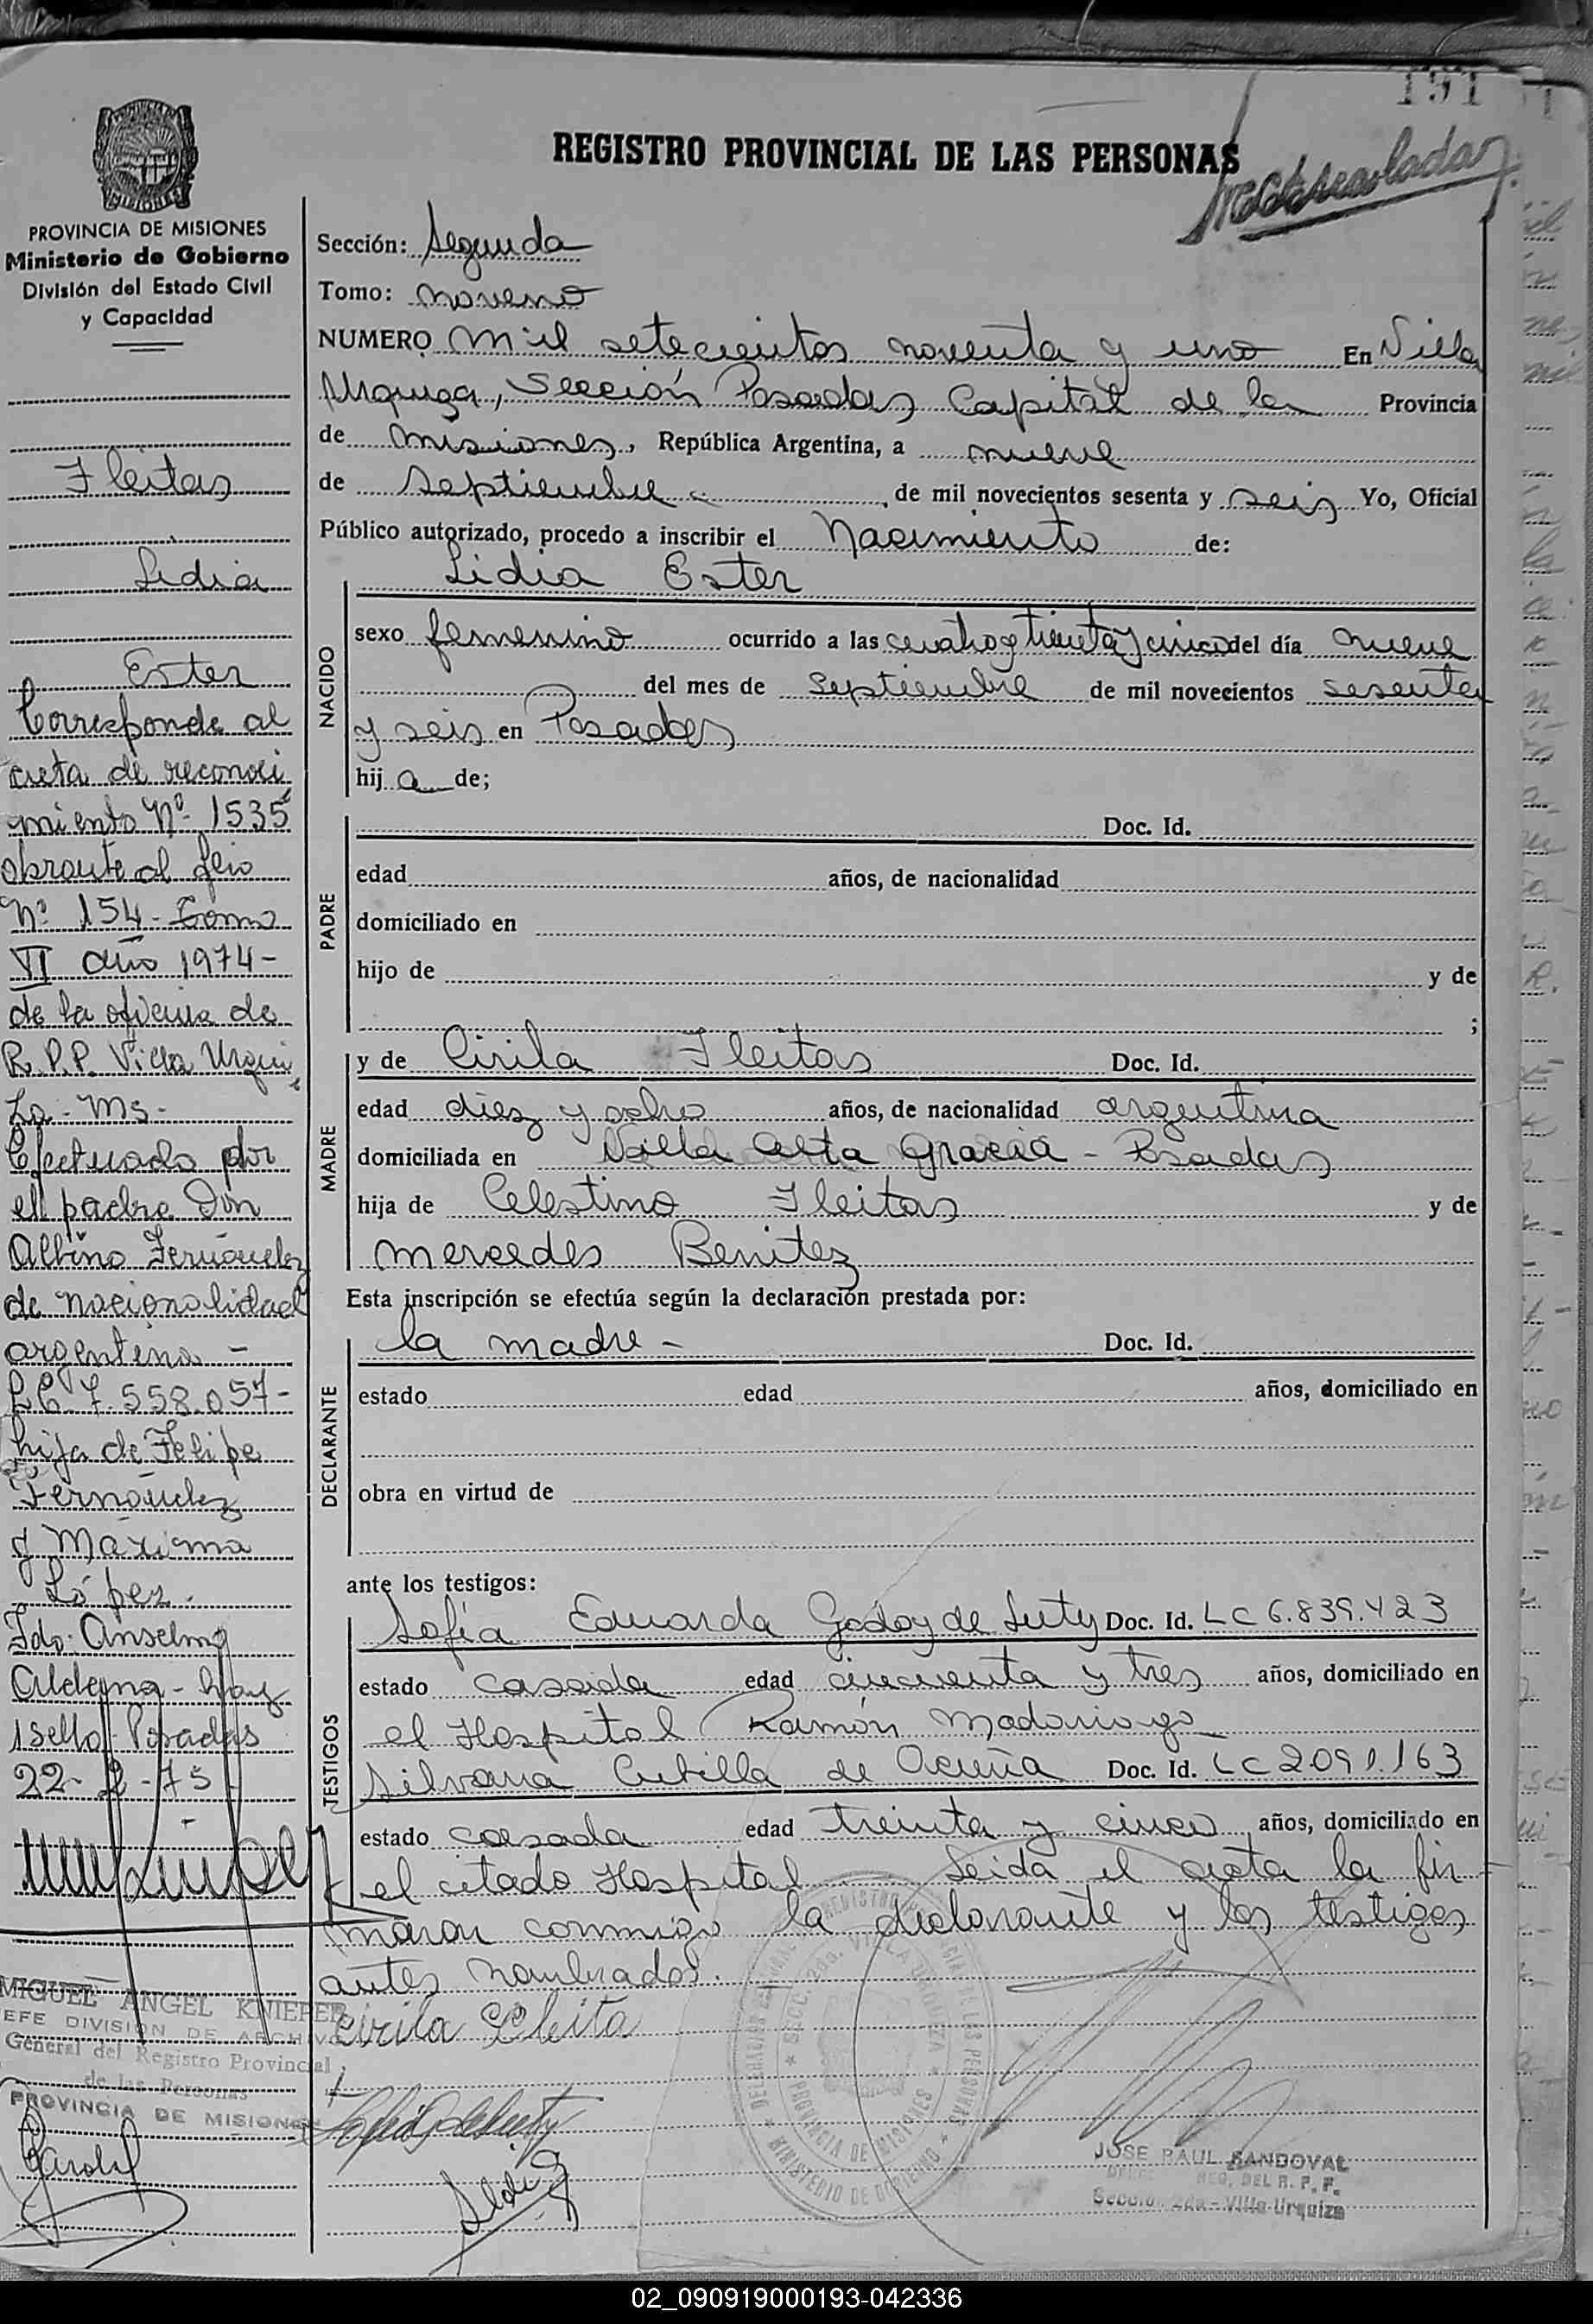 191
REGISTRO PROVINCIAL DE LAS PERSONAS
PROVINCIA DE MISIONES
Ministerio de Gobierno
División del Estado Civil
y Capacidad
Fleitas
Lidia
Ester
Corresponde al
acta de reconoci
miento Nº 1535
obrante al flio
Nº 154 - Tomo
VI año 1974 -
de la oficina de
R.P.P. Villa Urqui
za - Ms -
Efectuado por
el padre Don
Albino Fernández
de nacionalidad
argentina -
7.558.057 -
hijo de Felipe
Fernández
y Máxima
López.
Fdo: Anselmo
Aldema - hay
1 sello Posadas
22 - 2 - 75 -
MIGUEL ANGEL KNIEPER
JEFE DIVISION DE ARCHIVO
General del Registro Provincial
de las Personas
PROVINCIA DE MISIONES
Sección: Segunda
Tomo: noveno
NUMERO mil setecientos noventa y uno En Villa
Urquiza, Sección Posadas, Capital de la Provincia
de Misiones, República Argentina, a nueve
de Septiembre de mil novecientos sesenta y seis Yo, Oficial
Público autorizado, procedo a inscribir el Nacimiento de:
NACIDO
Lidia Ester
sexo femenino ocurrido a las cuatro y treinta y cinco del día nueve
del mes de Septiembre de mil novecientos sesenta
y seis en Posadas
hij a de;
PADRE
Doc. Id.
edad años, de nacionalidad
domiciliado en
hijo de y de
;
MADRE
y de Cirila Fleitas Doc. Id.
edad diez y ocho años, de nacionalidad argentina
domiciliada en Villa Alta Gracia - Posadas
hija de Celestino Fleitas y de
Mercedes Benitez
Esta inscripción se efectúa según la declaración prestada por:
DECLARANTE
la madre - Doc. Id.
estado edad años, domiciliado en
obra en virtud de
ante los testigos:
TESTIGOS
Sofía Eduarda Godoy de Luty Doc. Id. LC 6.839.423
estado casada edad cincuenta y tres años, domiciliado en
el Hospital Ramón Madariaga
Silvana Cubilla de Acuña Doc. Id. LC 2.091.163
estado casada edad treinta y cinco años, domiciliado en
el citado Hospital Leida el acta la fir
maron conmigo la declarante y los testigos
antes nombrados.
Cirila Fleita
REGISTRO PROVINCIAL DE LAS PERSONAS
SECC. 2da. VILLA URQUIZA
PROVINCIA DE MISIONES
MINISTERIO DE GOBIERNO
JOSE RAUL SANDOVAL
REG. DEL R. P. P.
Sección 2da - Villa Urquiza
02_090919000193-042336